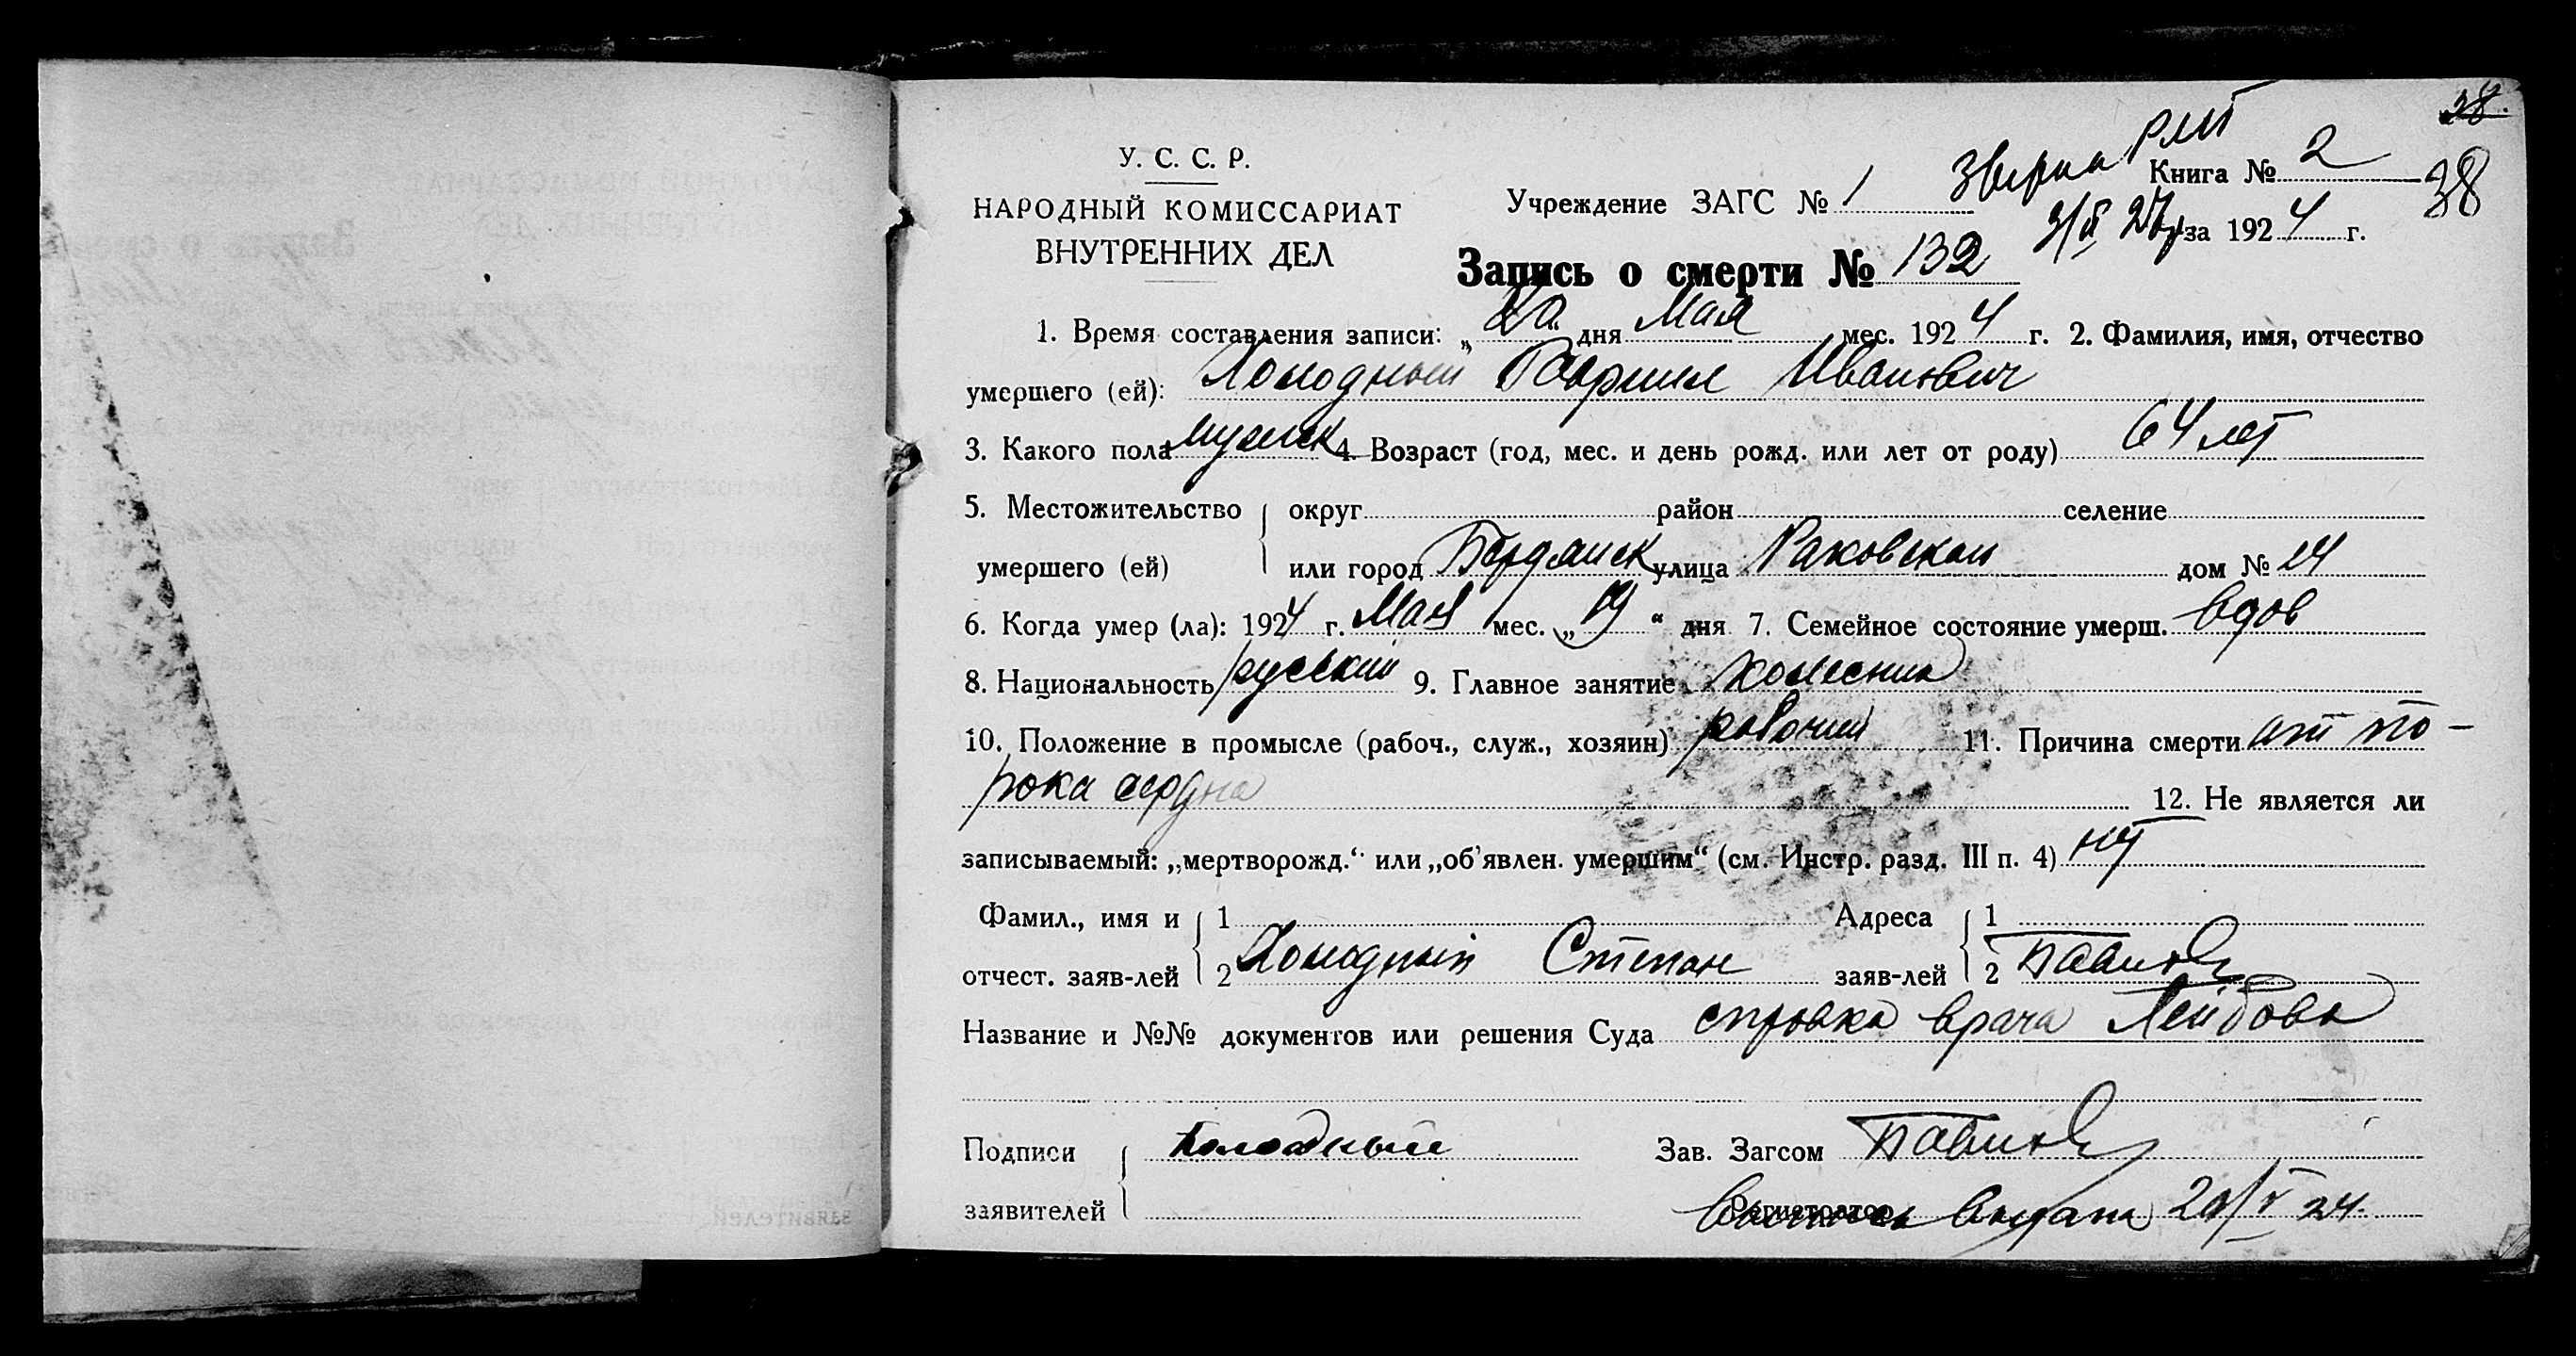 38.
38
У. С. С. Р.
НАРОДНЫЙ КОМИССАРИАТ
ВНУТРЕННИХ ДЕЛ
Книга № 2
Учреждение ЗАГС № 1
за 1924 г.
Запись о смерти № 132
1. Время составления записи: „ 20 дня Мая мес. 1924 г. 2. Фамилия, имя, отчество
умершего (ей): Холодный Гавриил Иванович
3. Какого пола мужск 4. Возраст (год, мес. и день рожд. или лет от роду) 64 лет
5. Местожительство округ район селение
умершего (ей) или город Бердянск улица Раковская дом № 24
6. Когда умер (ла): 1924 г. Мая мес. „ 19 “ дня 7. Семейное состояние умерш. вдов
8. Национальность русский 9. Главное занятие колесник
10. Положение в промысле (рабоч., служ., хозяин) рабочий 11. Причина смерти от по-
рока сердца 12. Не является ли
записываемый: „мертворожд.“ или „об’явлен. умершим“ (см. Инстр. разд. III п. 4) нет
Фамил., имя и 1 Адреса 1
отчест. заяв-лей 2 Холодный Степан заяв-лей 2
Название и №№ документов или решения Суда справка врача Лейбова
Подписи Холодный Зав. Загсом
заявителей Регистратор Выпись выдана 20/V 24.